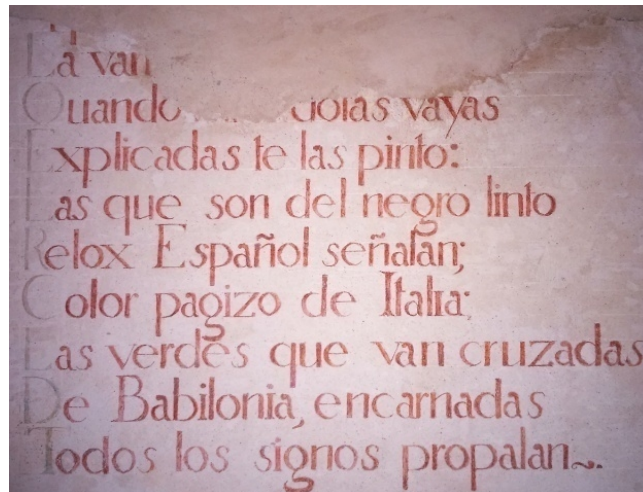 La van
Quando vayas
Explicadas te las pinto:
Las que son del negro tinto
Relox Español señalan;
Color pagizo de Italia;
Las verdes que van cruzadas
De Babilonia, encarnadas
Todos los signos propalan~.